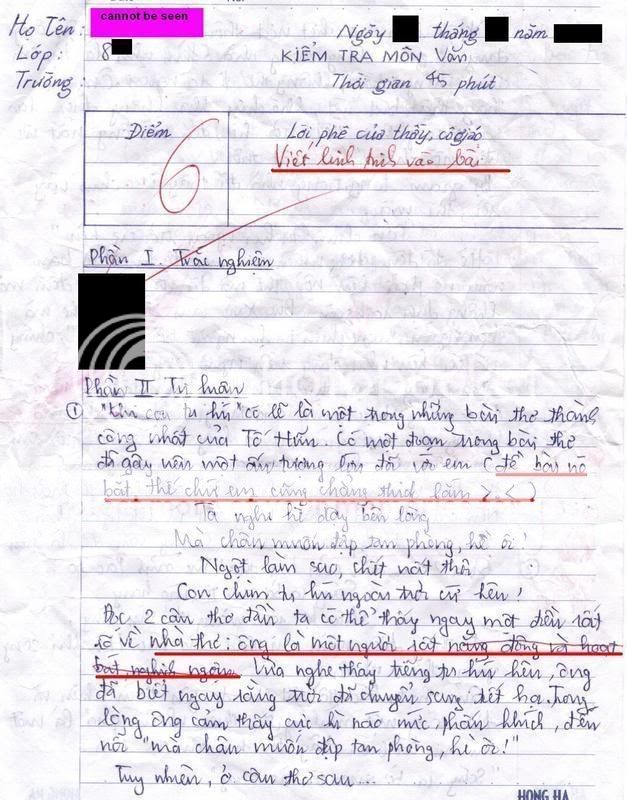 Họ Tên: cannot be seen
Ngày tháng năm
Lớp: 8
KIỂM TRA MÔN Văn
Trường:
Thời gian 45 phút
Điểm
Lời phê của thầy, cô giáo
6
Viết linh tinh vào bài
Phần I. Trắc nghiệm
Phần II. Tự luận
① "Khi con tu hú" có lẽ là một trong những bài thơ thành
công nhất của Tố Hữu. Có một đoạn trong bài thơ
đã gây nên một ấn tượng lớn đối với em (đề bài nó
bắt thế chứ em cũng chẳng thích lắm >.<)
Ta nghe hè dậy bên lòng
Mà chân muốn đạp tan phòng, hè ôi!
Ngột làm sao, chết uất thôi
Con chim tu hú ngoài trời cứ kêu!
Đọc 2 câu thơ đầu ta có thể thấy ngay một điều rất
rõ về nhà thơ: ông là một người rất năng động và hoạt
bát, nghịch ngợm. Vừa nghe thấy tiếng tu hú kêu, ông
đã biết ngay rằng trời đã chuyển sang tiết hạ. Trong
lòng ông cảm thấy cực kì náo nức, phấn khích, đến
nỗi "mà chân muốn đạp tan phòng, hè ôi!"
Tuy nhiên, ở câu thơ sau...
HONG HA